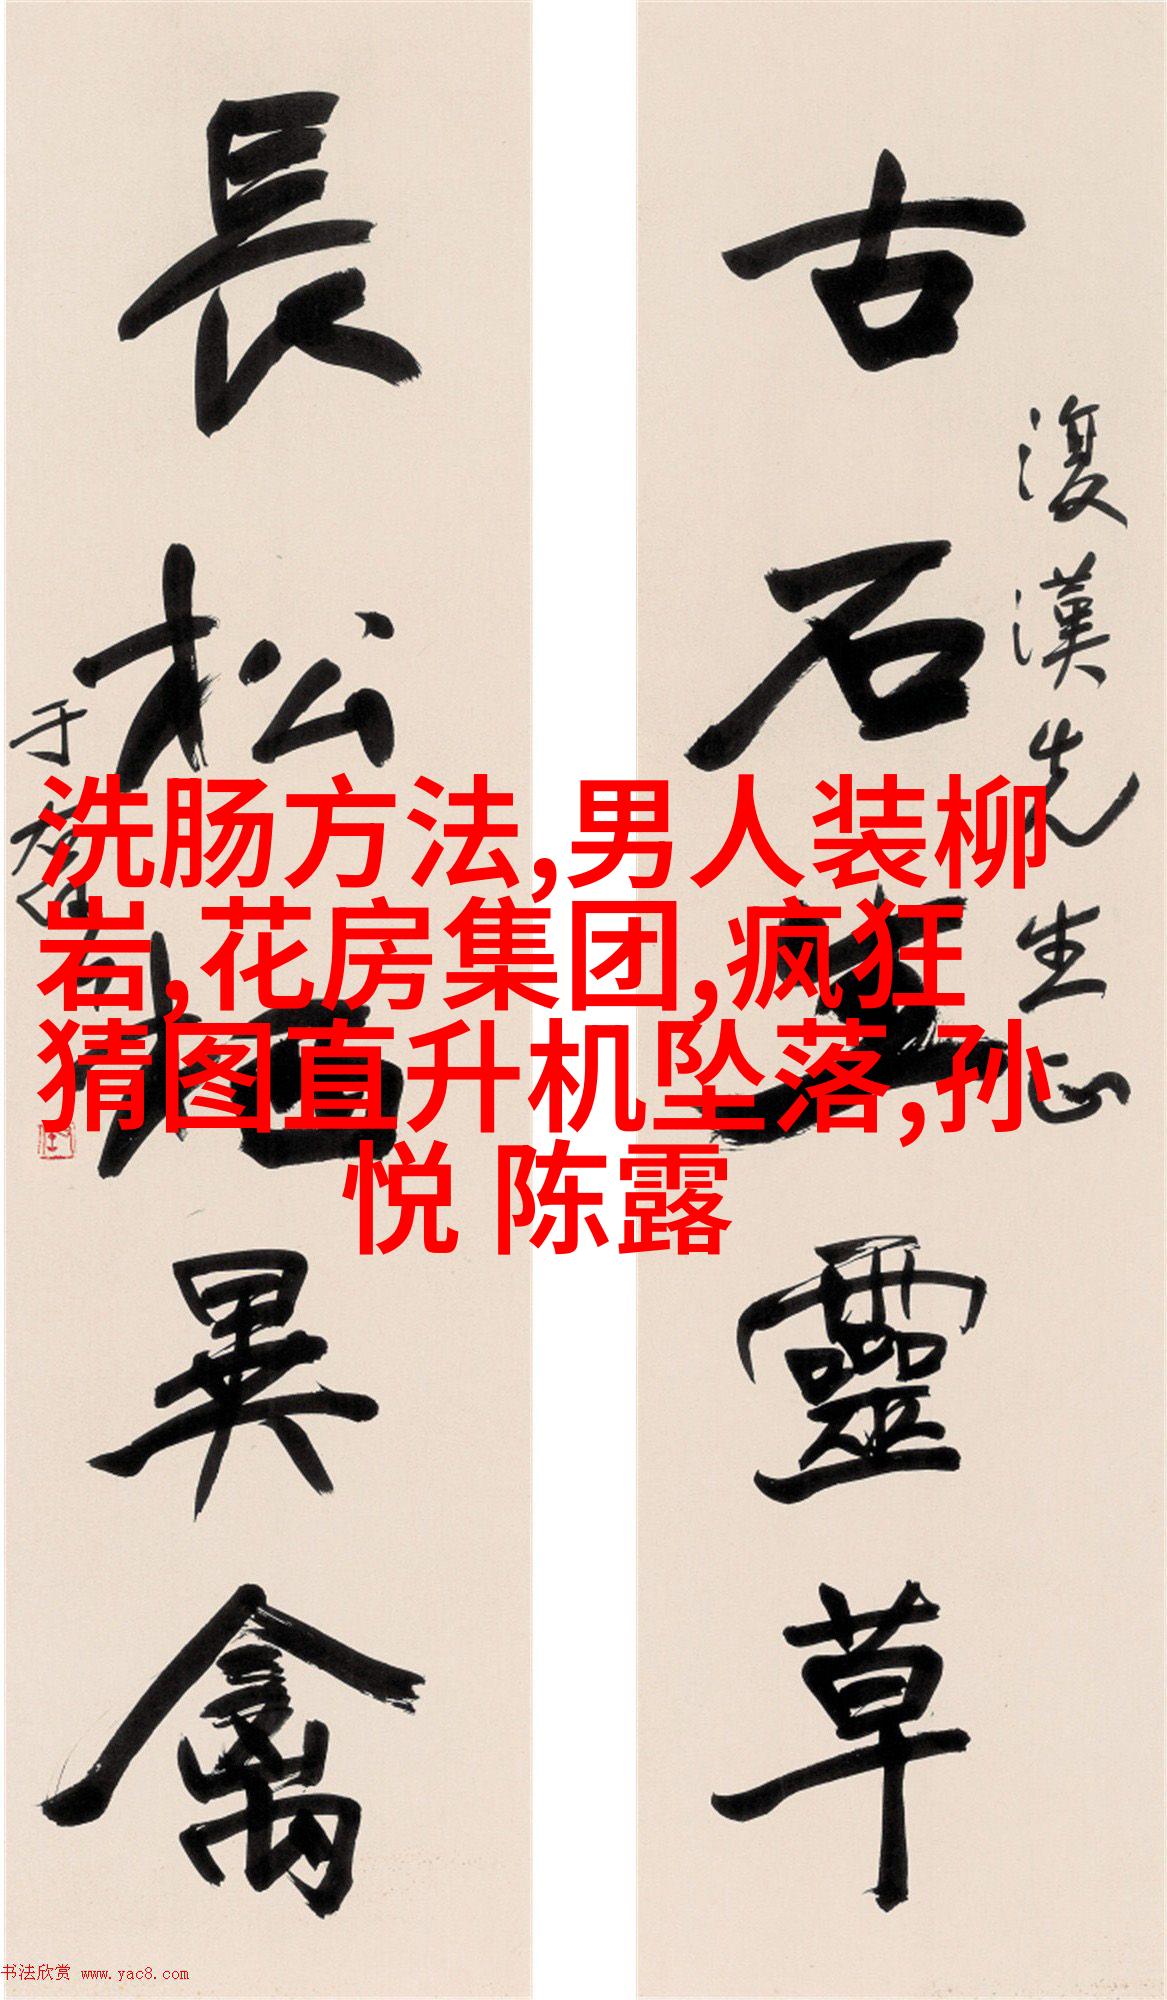 古石生靈草
復漢先生正
長松挹異禽
于右任
洗肠方法,男人装柳
岩,花房集团,疯狂
猜图直升机坠落,孙
悦 陈露
书法欣赏 www.yac8.com